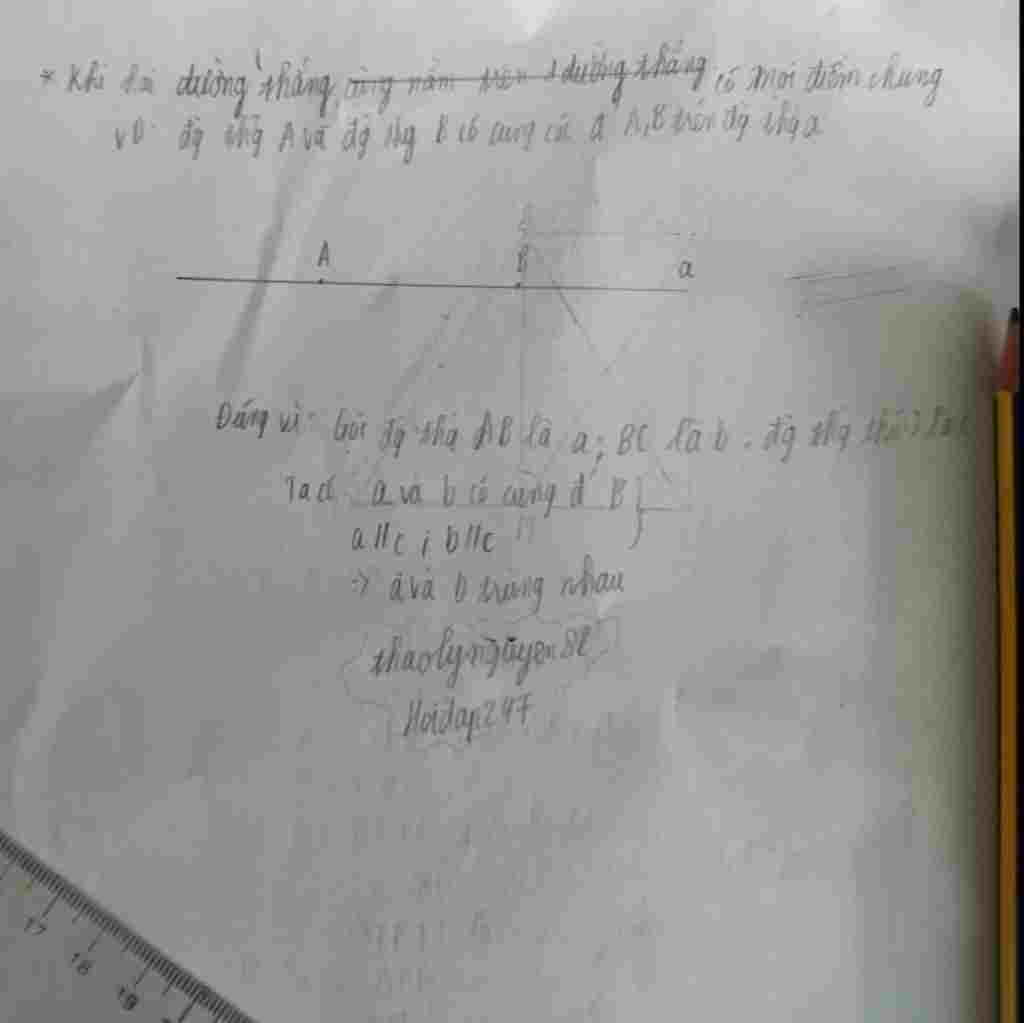 * Khi hai đường thẳng cùng nằm trên 1 đường thẳng có mọi điểm chung
VD: đg thg A và đg thg B có cùng các đ' A, B trên đg thg a
A
B
a
Đúng vì: Gọi đg thg AB là a; BC là b. đg thg thứ 3 là c
Ta có a và b có cùng đ' B
a//c ; b//c
=> a và b trùng nhau
thaolynguyen82
Hoidap247
17
18
19